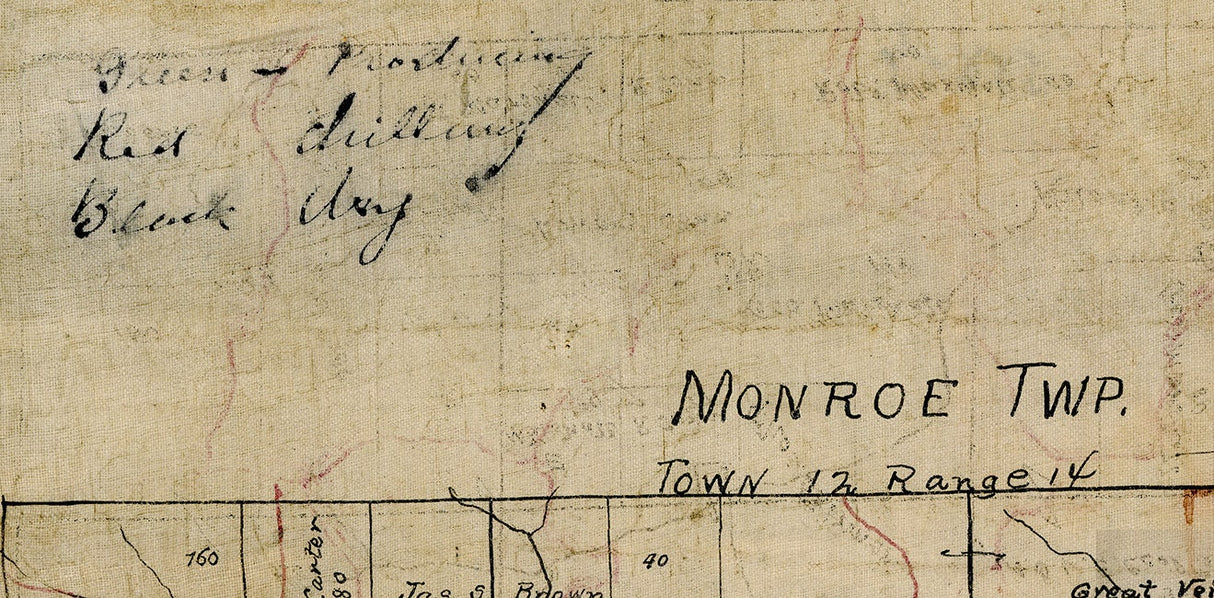 Green - Producing
Red drilling
Black dry
MONROE TWP.
TOWN 12 Range 14
160
Carter
80
Jas S Brown
40
Great Vei